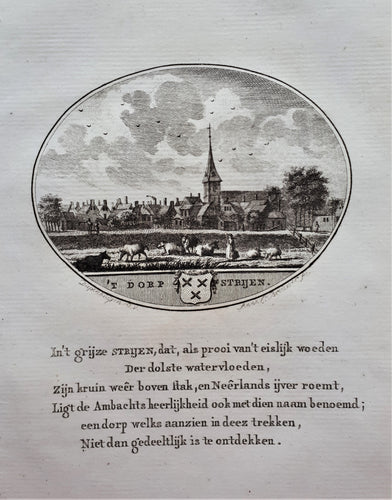 'T DORP STRIJEN.
In't grijze STRIJEN, dat, als prooi van't eislijk woeden
Der dolste watervloeden,
Zijn kruin weêr boven stak, en Neêrlands ijver roemt,
Ligt de Ambachts heerlijkheid ook met dien naam benoemd;
een dorp welks aanzien in deez trekken,
Niet dan gedeeltlijk is te ontdekken.